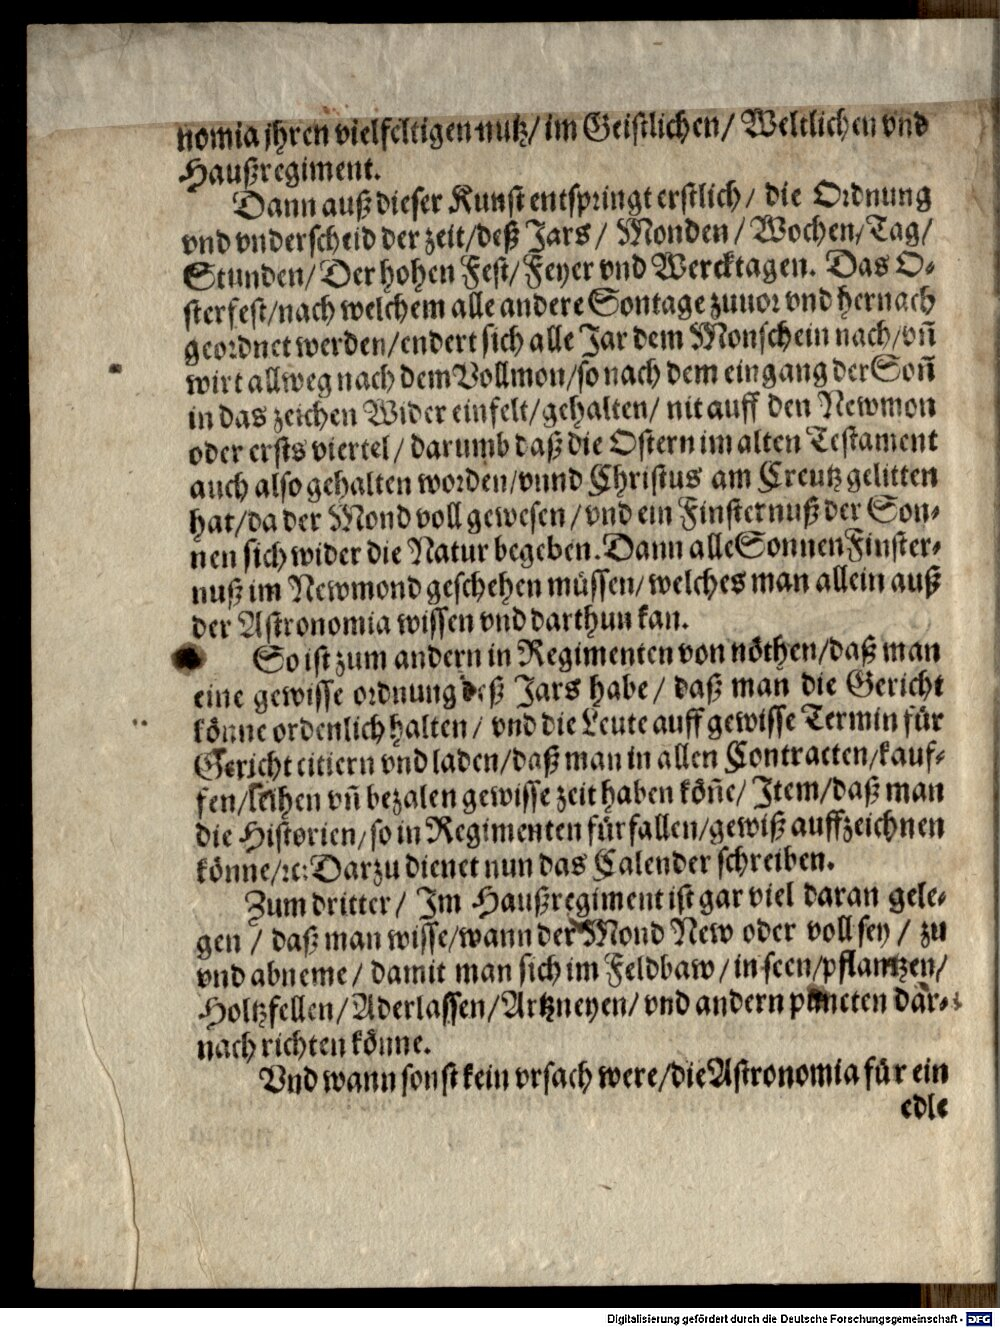 nomia jhren vielfeltigen nutz/ im Geistlichen/ Weltlichen vnd
Haußregiment.
Dann auß dieser Kunst entspringt erstlich/ die Ordnung
vnd vnderscheid der zeit/deß Jars/ Monden/ Wochen/Tag/
Stunden/ Der hohen Fest/ Feyer vnd Wercktagen. Das O-
sterfest/nach welchem alle andere Sontage zuuor vnd hernach
geordnet werden/endert sich alle Jar dem Monschein nach/vñ
wirt allweg nach dem Vollmon/so nach dem eingang der Soñ
in das zeichen Wider einfelt/gehalten/ nit auff den Newmon
oder ersts viertel/ darumb daß die Ostern im alten Testament
auch also gehalten worden/vnnd Christus am Creutz gelitten
hat/da der Mond voll gewesen/vnd ein Finsternuß der Son-
nen sich wider die Natur begeben. Dann alle Sonnen Finster-
nuß im Newmond geschehen müssen/welches man allein auß
der Astronomia wissen vnd darthun kan.
So ist zum andern in Regimenten von nöthen/daß man
eine gewisse ordnung deß Jars habe/ daß man die Gericht
könne ordenlich halten/ vnd die Leute auff gewisse Termin für
Gericht citiern vnd laden/daß man in allen Contracten/kauf-
fen/leihen vñ bezalen gewisse zeit haben köñe/ Item/daß man
die Historien/so in Regimenten fürfallen/gewiß auffzeichnen
könne/ꝛc: Darzu dienet nun das Calender schreiben.
Zum dritter/ Im Haußregiment ist gar viel daran gele-
gen/ daß man wisse/wann der Mond New oder voll sey/ zu
vnd abneme/ damit man sich im Feldbaw/in seen/pflantzen/
Holtzfellen/Aderlassen/Artzneyen/ vnd andern puncten dar-
nach richten könne.
Vnd wann sonst kein vrsach were/die Astronomia für ein
edle
Digitalisierung gefördert durch die Deutsche Forschungsgemeinschaft - DFG